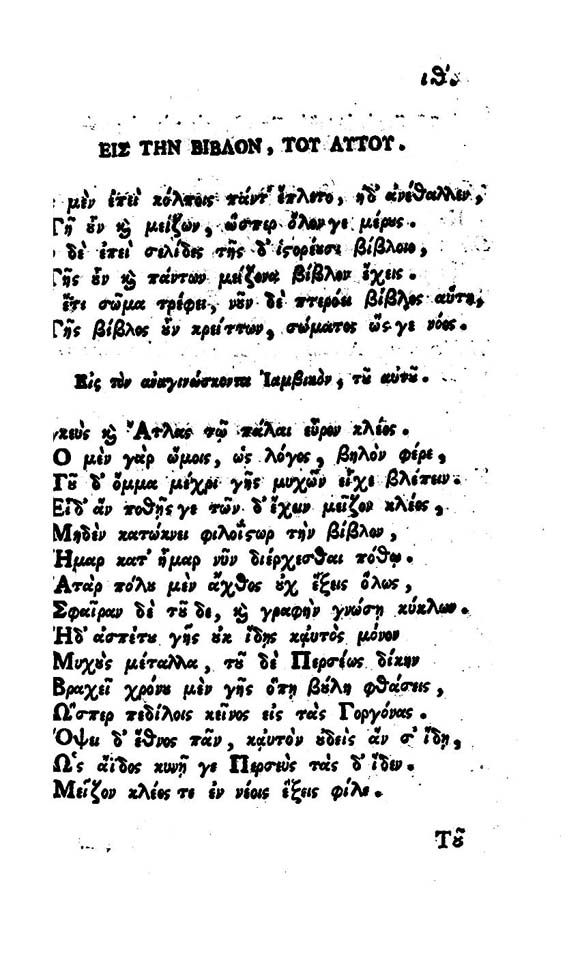 ιθ'.
ΕΙΣ ΤΗΝ ΒΙΒΛΟΝ, ΤΟΥ ΑΥΤΟΥ.
μὲν ἐπεὶ κόλποις πάντ' ἔπλετο, ἠδ' ἀνέθαλλεν,
Γῆ ȣ̓ν ϗ μείζων, ὥσπερ ὅλον γε μέρȣς.
δὲ ἐπεὶ σελίδες τῆς δ' ἱϛορέȣσι βίβλοιο,
Γῆς ȣ̓ν ϗ πάντων μείζονα βίβλον ἔχεις.
ἔτι σῶμα τρέφει, νȣ͂ν δὲ πτερόει βίβλος αὕτη,
Γῆς βίβλος ȣ̓ν κρείττων, σώματος ὥς γε νόος.
Εἰς τὸν ἀναγινώσκοντα Ἰαμβικὸν, τȣ͂ αὐτȣ͂.
γκεὺς ϗ Ἄτλας τῷ πάλαι εὗρον κλέος.
Ὁ μὲν γὰρ ὤμοις, ὡς λόγος, βηλὸν φέρε,
Τȣ͂ δ' ὄμμα μέχρι γῆς μυχῶν εἶχε βλέπειν.
Εἰδ' ἂν ποθῇς γε τῶν δ' ἔχειν μεῖζον κλέος,
Μηδὲν κατόκνει φιλοΐϛωρ τὴν βίβλον,
Ἦμαρ κατ' ἦμαρ νῦν διέρχεσθαι πόθῳ.
Ἀτὰρ πόλου μὲν ἄχθος ȣ̓χ ἕξεις ὅλως,
Σφαῖραν δὲ τȣ͂ δε, ϗ γραφὴν γνώσῃ κύκλων.
Ἠδ' ἀσπέτȣ γῆς ȣ̓κ ἴδῃς καυτὸς μόνον
Μυχοὺς μέταλλα, τȣ͂ δὲ Περσέως δίκην
Βραχεῖ χρόνῳ μὲν γῆς ὅπη βȣ́λῃ φθάσεις,
Ὥσπερ πεδίλοις κεῖνος εἰς τὰς Γοργόνας.
Ὄψει δ' ἔθνος πᾶν, καυτὸν ȣ̓δεὶς ἄν σ' ἴδῃ,
Ὡς ἄϊδος κυνῇ γε Περσεὺς τὰς δ' ἴδεν.
Μεῖζον κλέος τε ἐν νέοις ἕξεις φίλε.
Τȣ͂